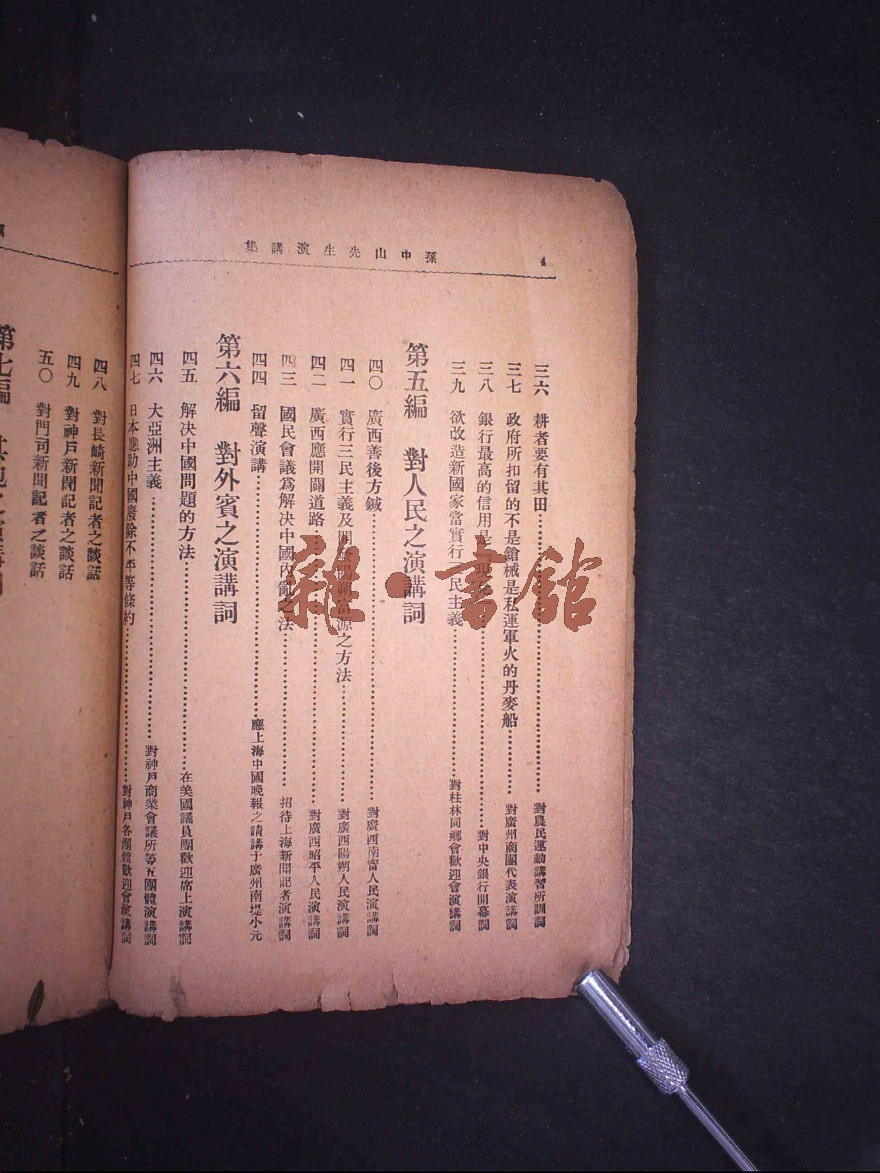 孫中山先生演講集
4
三六 耕者要有其田……對農民運動講習所訓詞
三七 政府所扣留的不是鎗械是私運軍火的丹麥船……對廣州商團代表演講詞
三八 銀行最高的信用是……對中央銀行開幕詞
三九 欲改造新國家當實行三民主義……對桂林同鄉會歡迎會演講詞
第五編 對人民之演講詞
四〇 廣西善後方鍼……對廣西南寧人民演講詞
四一 實行三民主義及開發陽朔富源之方法……對廣西陽朔人民演講詞
四二 廣西應開闢道路……對廣西昭平人民演講詞
四三 國民會議爲解決中國內亂之法……招待上海新聞記者演講詞
四四 留聲演講……應上海中國晚報之請講于廣州南堤小元
第六編 對外賓之演講詞
四五 解決中國問題的方法……在美國議員團歡迎席上演講詞
四六 大亞洲主義……對神戶商業會議所等五團體演講詞
四七 日本應助中國廢除不平等條約……對神戶各團體歡迎會演講詞
四八 對長崎新聞記者之談話
四九 對神戶新聞記者之談話
五〇 對門司新聞記者之談話
第七編
雜·書館